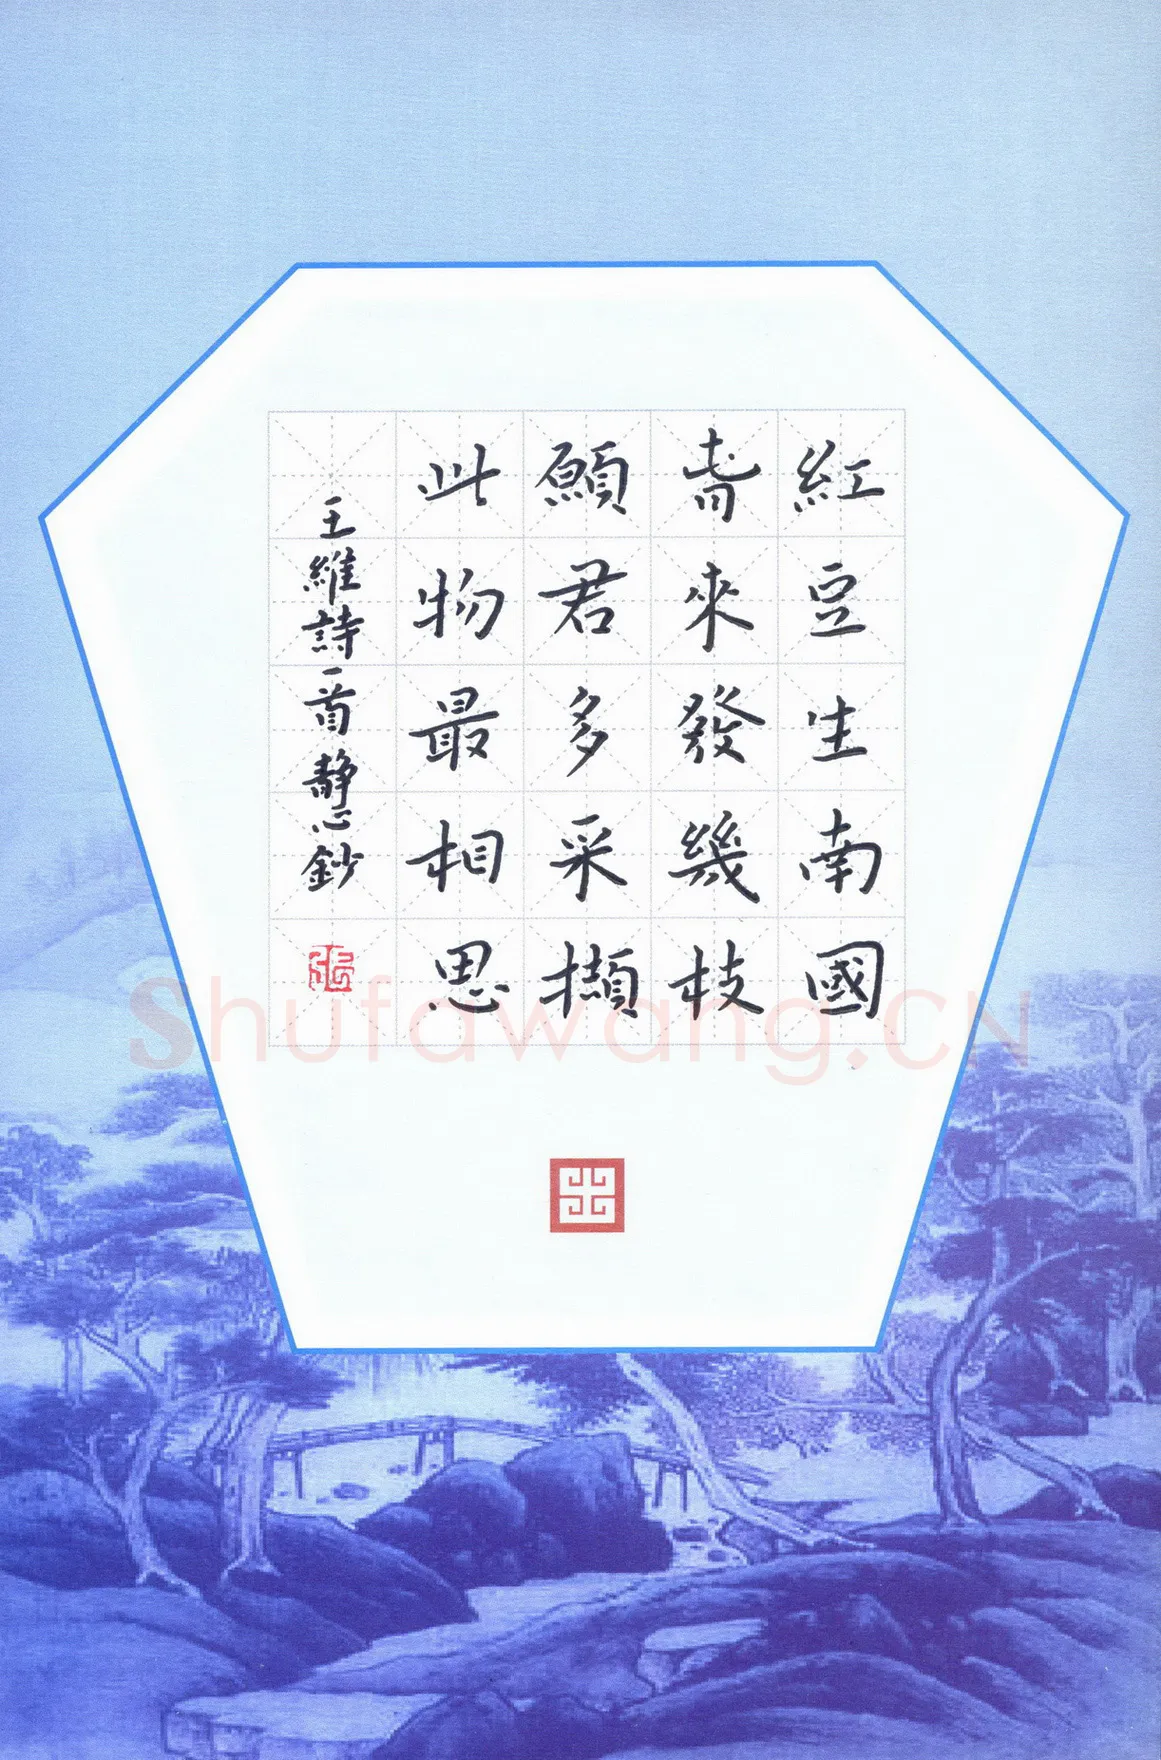 紅豆生南國
春來發幾枝
願君多采擷
此物最相思
王維詩一首靜心鈔
Shufawang.CN